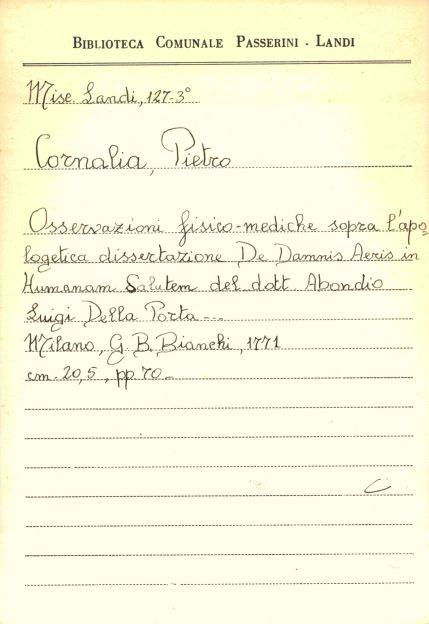 BIBLIOTECA COMUNALE PASSERINI - LANDI
Misc. Landi, 127-3°
Cornalia, Pietro
Osservazioni fisico-mediche sopra l'apo=
logetica dissertazione De Damnis Aeris in
Humanam Salutem del dott Abondio
Luigi Della Porta ---
Milano, G. B. Bianchi, 1771
cm. 20,5, pp. 70-
C